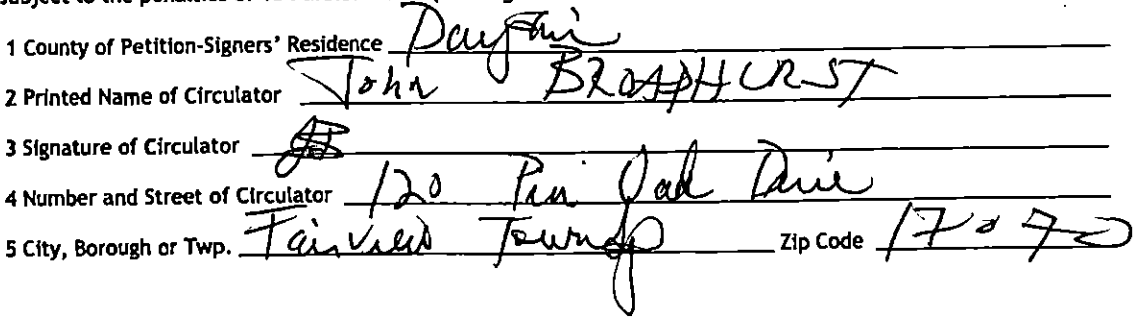 1 County of Petition-Signers' Residence Dauphin
2 Printed Name of Circulator John BROADHURST
3 Signature of Circulator
4 Number and Street of Circulator 120 Pin Oak Drive
5 City, Borough or Twp. Fairview Township Zip Code 17070